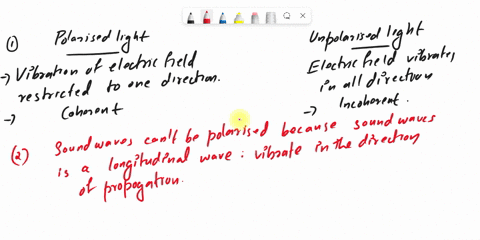 (1) Polarised light
→ Vibration of electric field
restricted to one direction.
→ Coherent
Unpolarised light
Electric field vibrates
in all direction
→ Incoherent.
(2) Sound waves can't be polarised because sound waves
is a longitudinal wave : vibrate in the direction
of propogation.